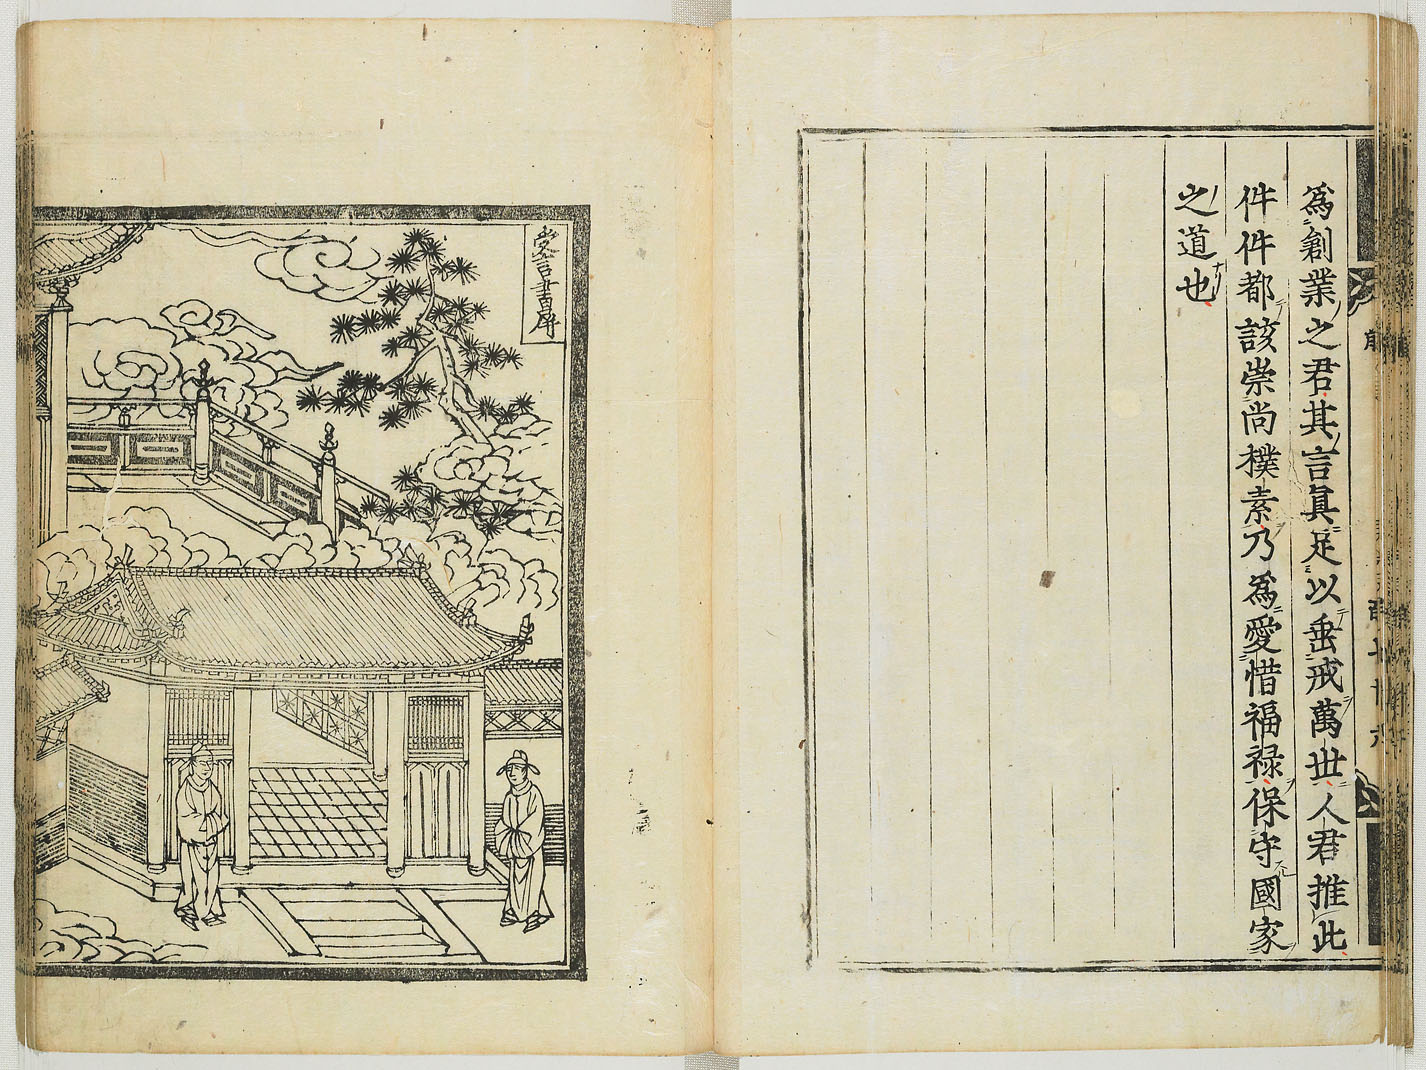 爲創業之君其言眞足以垂戒萬世人君推此
件件都該崇尚樸素乃爲愛惜福禄保守國家
之道也
受言書屏